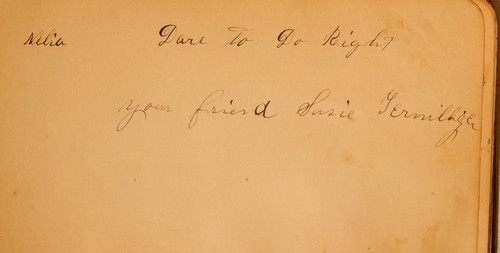 Nelia Dare to Do Right
your friend Susie Terwilliger